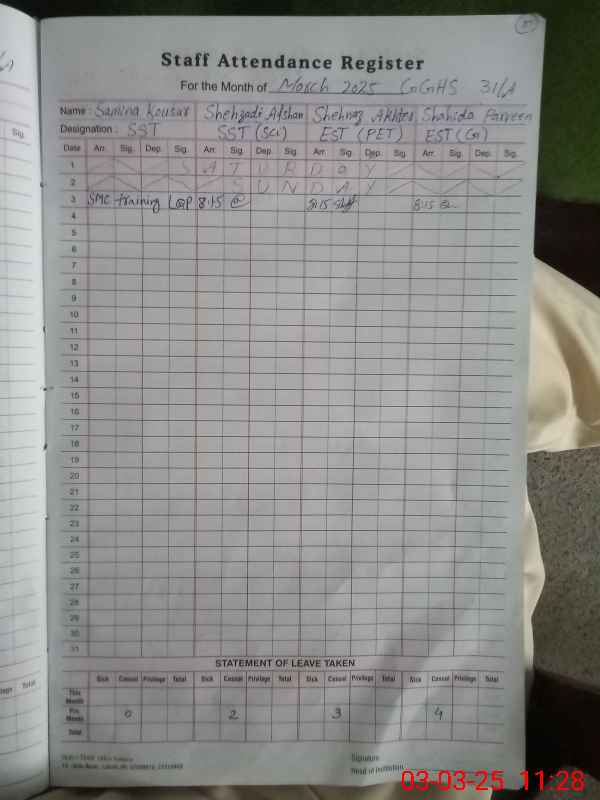 Staff Attendance Register
For the Month of March 2025 GGHS 31/A
Name : Samina Kousar Shehzadi Afshan Shehnaz Akhter Shahida Parveen
Designation : SST SST (Sci) EST (PET) EST (G)
Date Arr. Sig. Dep. Sig. Arr. Sig. Dep. Sig. Arr. Sig. Dep. Sig. Arr. Sig. Dep. Sig.
1 SATURDAY
2 SUNDAY
3 SMC training 8:15 8:15 8:15
4
5
6
7
8
9
10
11
12
13
14
15
16
17
18
19
20
21
22
23
24
25
26
27
28
29
30
31
STATEMENT OF LEAVE TAKEN
Sick Casual Privilege Total Sick Casual Privilege Total Sick Casual Privilege Total Sick Casual Privilege Total
This Month
Pre. Month 0 2 3 4
Total
Signature
Head of Institution
Sig.
Total
03-03-25 11:28